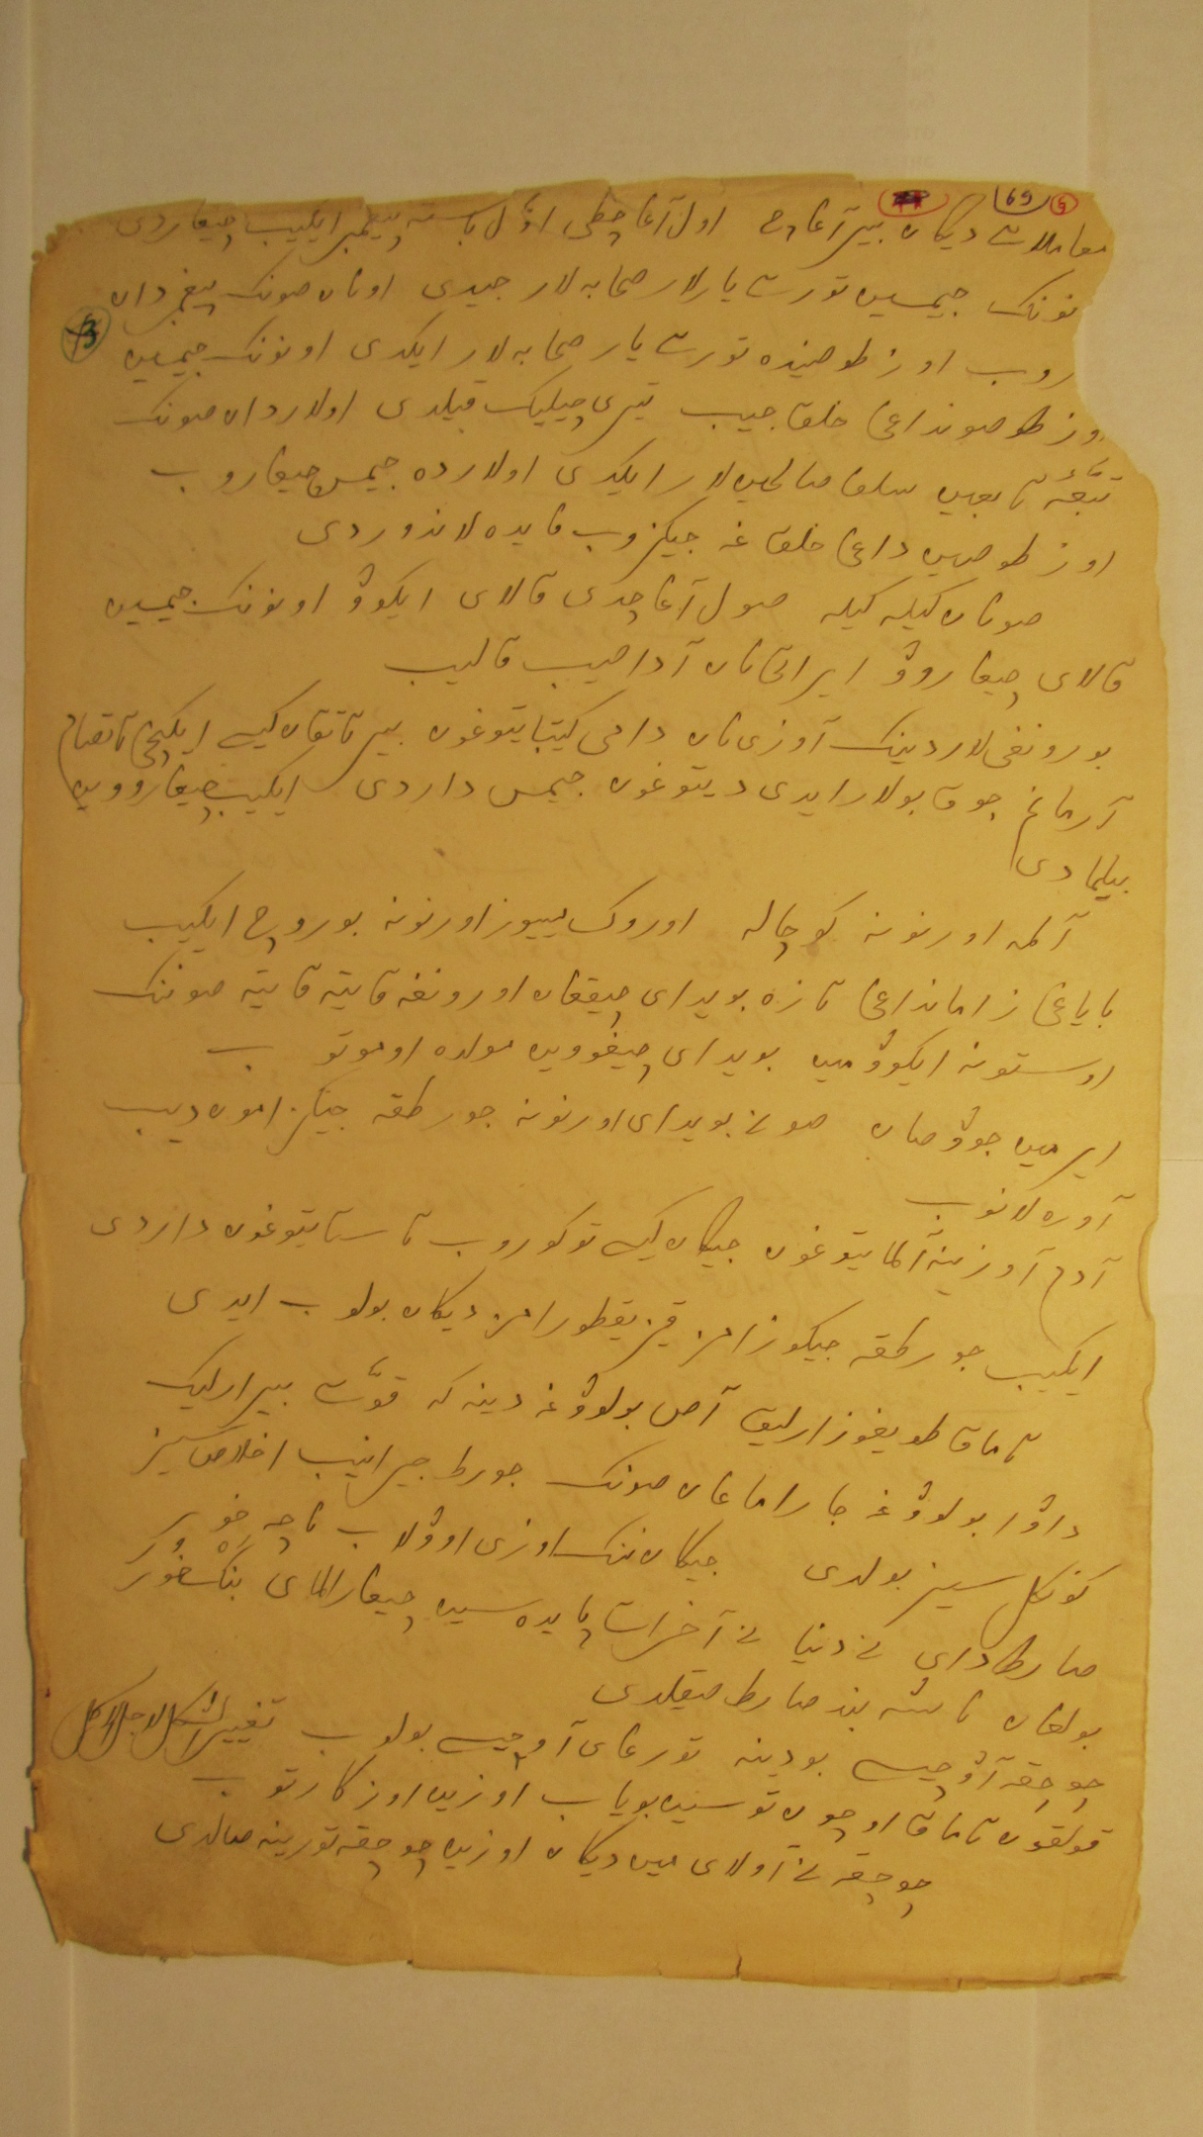 معاملات دیکان بیر آغاچ اول آغاچطی اوّل باستہ پیغمبر ایکیب چیغاردی
نونک جیمسین تورت یارلار صحابه لار جیدی اونان صونک پیغمبردان
روب اوز طوصینده تورت یار صحابه لار ایکدی اونونک جیمسین
وز طوصونداغی خلق جیب تیری چیلیک قیلدی اولاردان صونک
تبعۀ تابعین سلف صالحین لار ایکدی اولارده جیمس چیغاروب
اوز طوصین داغی خلق غه جیکزوب فایده لاندوردی
صونان کیله کیله صول آغاچدی قالای ایکوۋ اونونک جیمسین
قالای چیغاروۋ ایراتی نان آداصیب قالیب
بورونغی لاردینک آوزی نان دامی کیتپایتوغون بیر تاتقان کیسی ایکینچی تاتصام
آرمانم جوق بولار ایدی دیتوغون جیمس داردی ایکیب چیغاروویدی
بیلمادی
آلمه اورنونه کوچاله اوروک ییوز اورنونه بوروچ ایکیب
بایاغی زامانداغی تازه بویدای چیققان اورونغه قایته قایته صوننک
اوستونه ایکوۋ مین بویدای چیغوویدی مولده اوموتوب
ایر مین جوۋصان صونی بویدای اورنونه جورطقه جیکزامون دیب
آوره لانوب
آدم آوزینه آلمایتوغون جیکان کیسی توکوروب تاستایتوغون داردی
ایکیب جورطقه جیکوزامز قیزیقطورامز دیکان بولوب ایدی
تاماق طویغوزارلیق آص بولوۋغه دینه که قوّت بیرارلیک
داۋا بولوۋغه جاراماغان صونک جورط جیرانیب اخلاص سیز
کونکل سیز بولدی جیکان ننک اوزی اوۋلاب ناچه خور
صارطدای نی دنیا نی آخرات پایده سین چیغارالمای بنک خور
بولغان ناشه بند صارط صیقلدی
چوچقه آۋچیسی بودینه تورغای آوچیسی بولوب تغییر الشکل لاجل الاکل
قولقون تاماق اوچون توسین بویاب اوزین اوزکارتوب
چوچقه نی آولای مین دیکان اوزین چوچقه تورینه صالدی